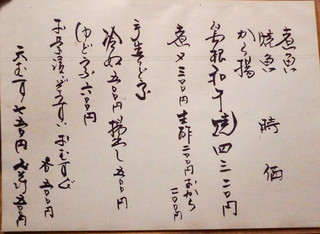 煮魚
焼魚 時価
から揚
島根和牛焼 四三二〇円
煮メ 三〇〇円 生酢 二〇〇円 おから 二〇〇円
手造どうふ
冷ぬ 五〇〇円 揚だし 五〇〇円
ゆどうふ 六〇〇円
おむすび 各五〇〇円
天むす 七五〇円